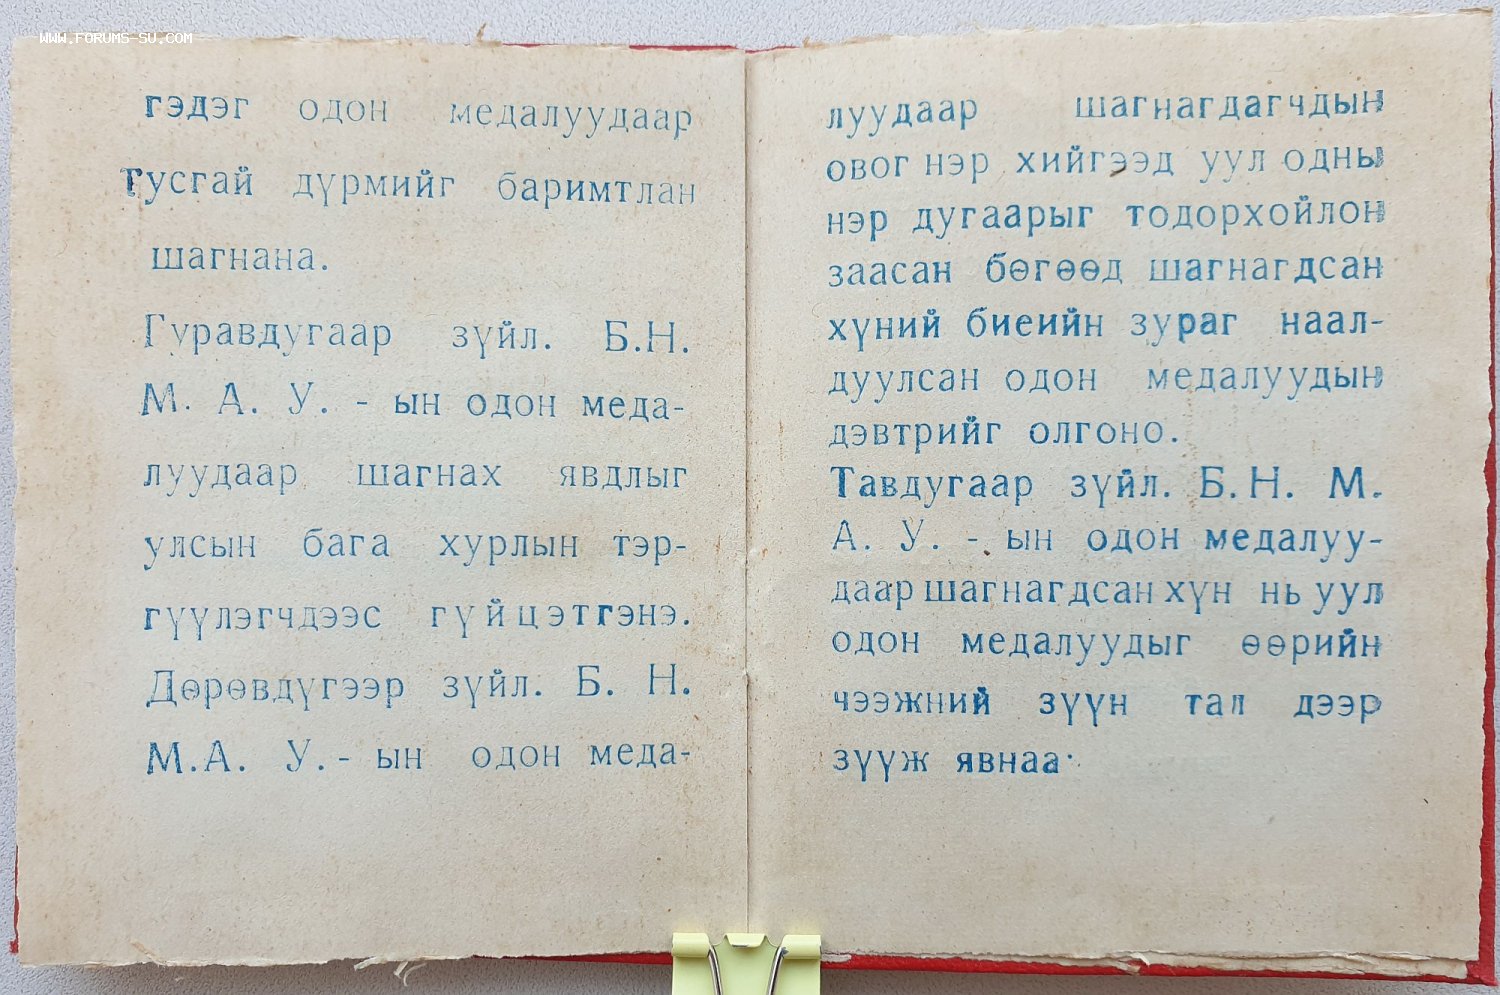 WWW.FORUMS-SU.COM
гэдэг одон медалуудаар
тусгай дүрмийг баримтлан
шагнана.
Гуравдугаар зүйл. Б.Н.
М. А. У. - ын одон меда-
луудаар шагнах явдлыг
улсын бага хурлын тэр-
гүүлэгчдээс гүйцэтгэнэ.
Дөрөвдүгээр зүйл. Б. Н.
М.А. У. - ын одон меда-
луудаар шагнагдагчдын
овог нэр хийгээд уул одны
нэр дугаарыг тодорхойлон
заасан бөгөөд шагнагдсан
хүний биеийн зураг наал-
дуулсан одон медалуудын
дэвтрийг олгоно.
Тавдугаар зүйл. Б. Н. М.
А. У. - ын одон медалуу-
даар шагнагдсан хүн нь уул
одон медалуудыг өөрийн
чээжний зүүн тал дээр
зүүж явнаа.